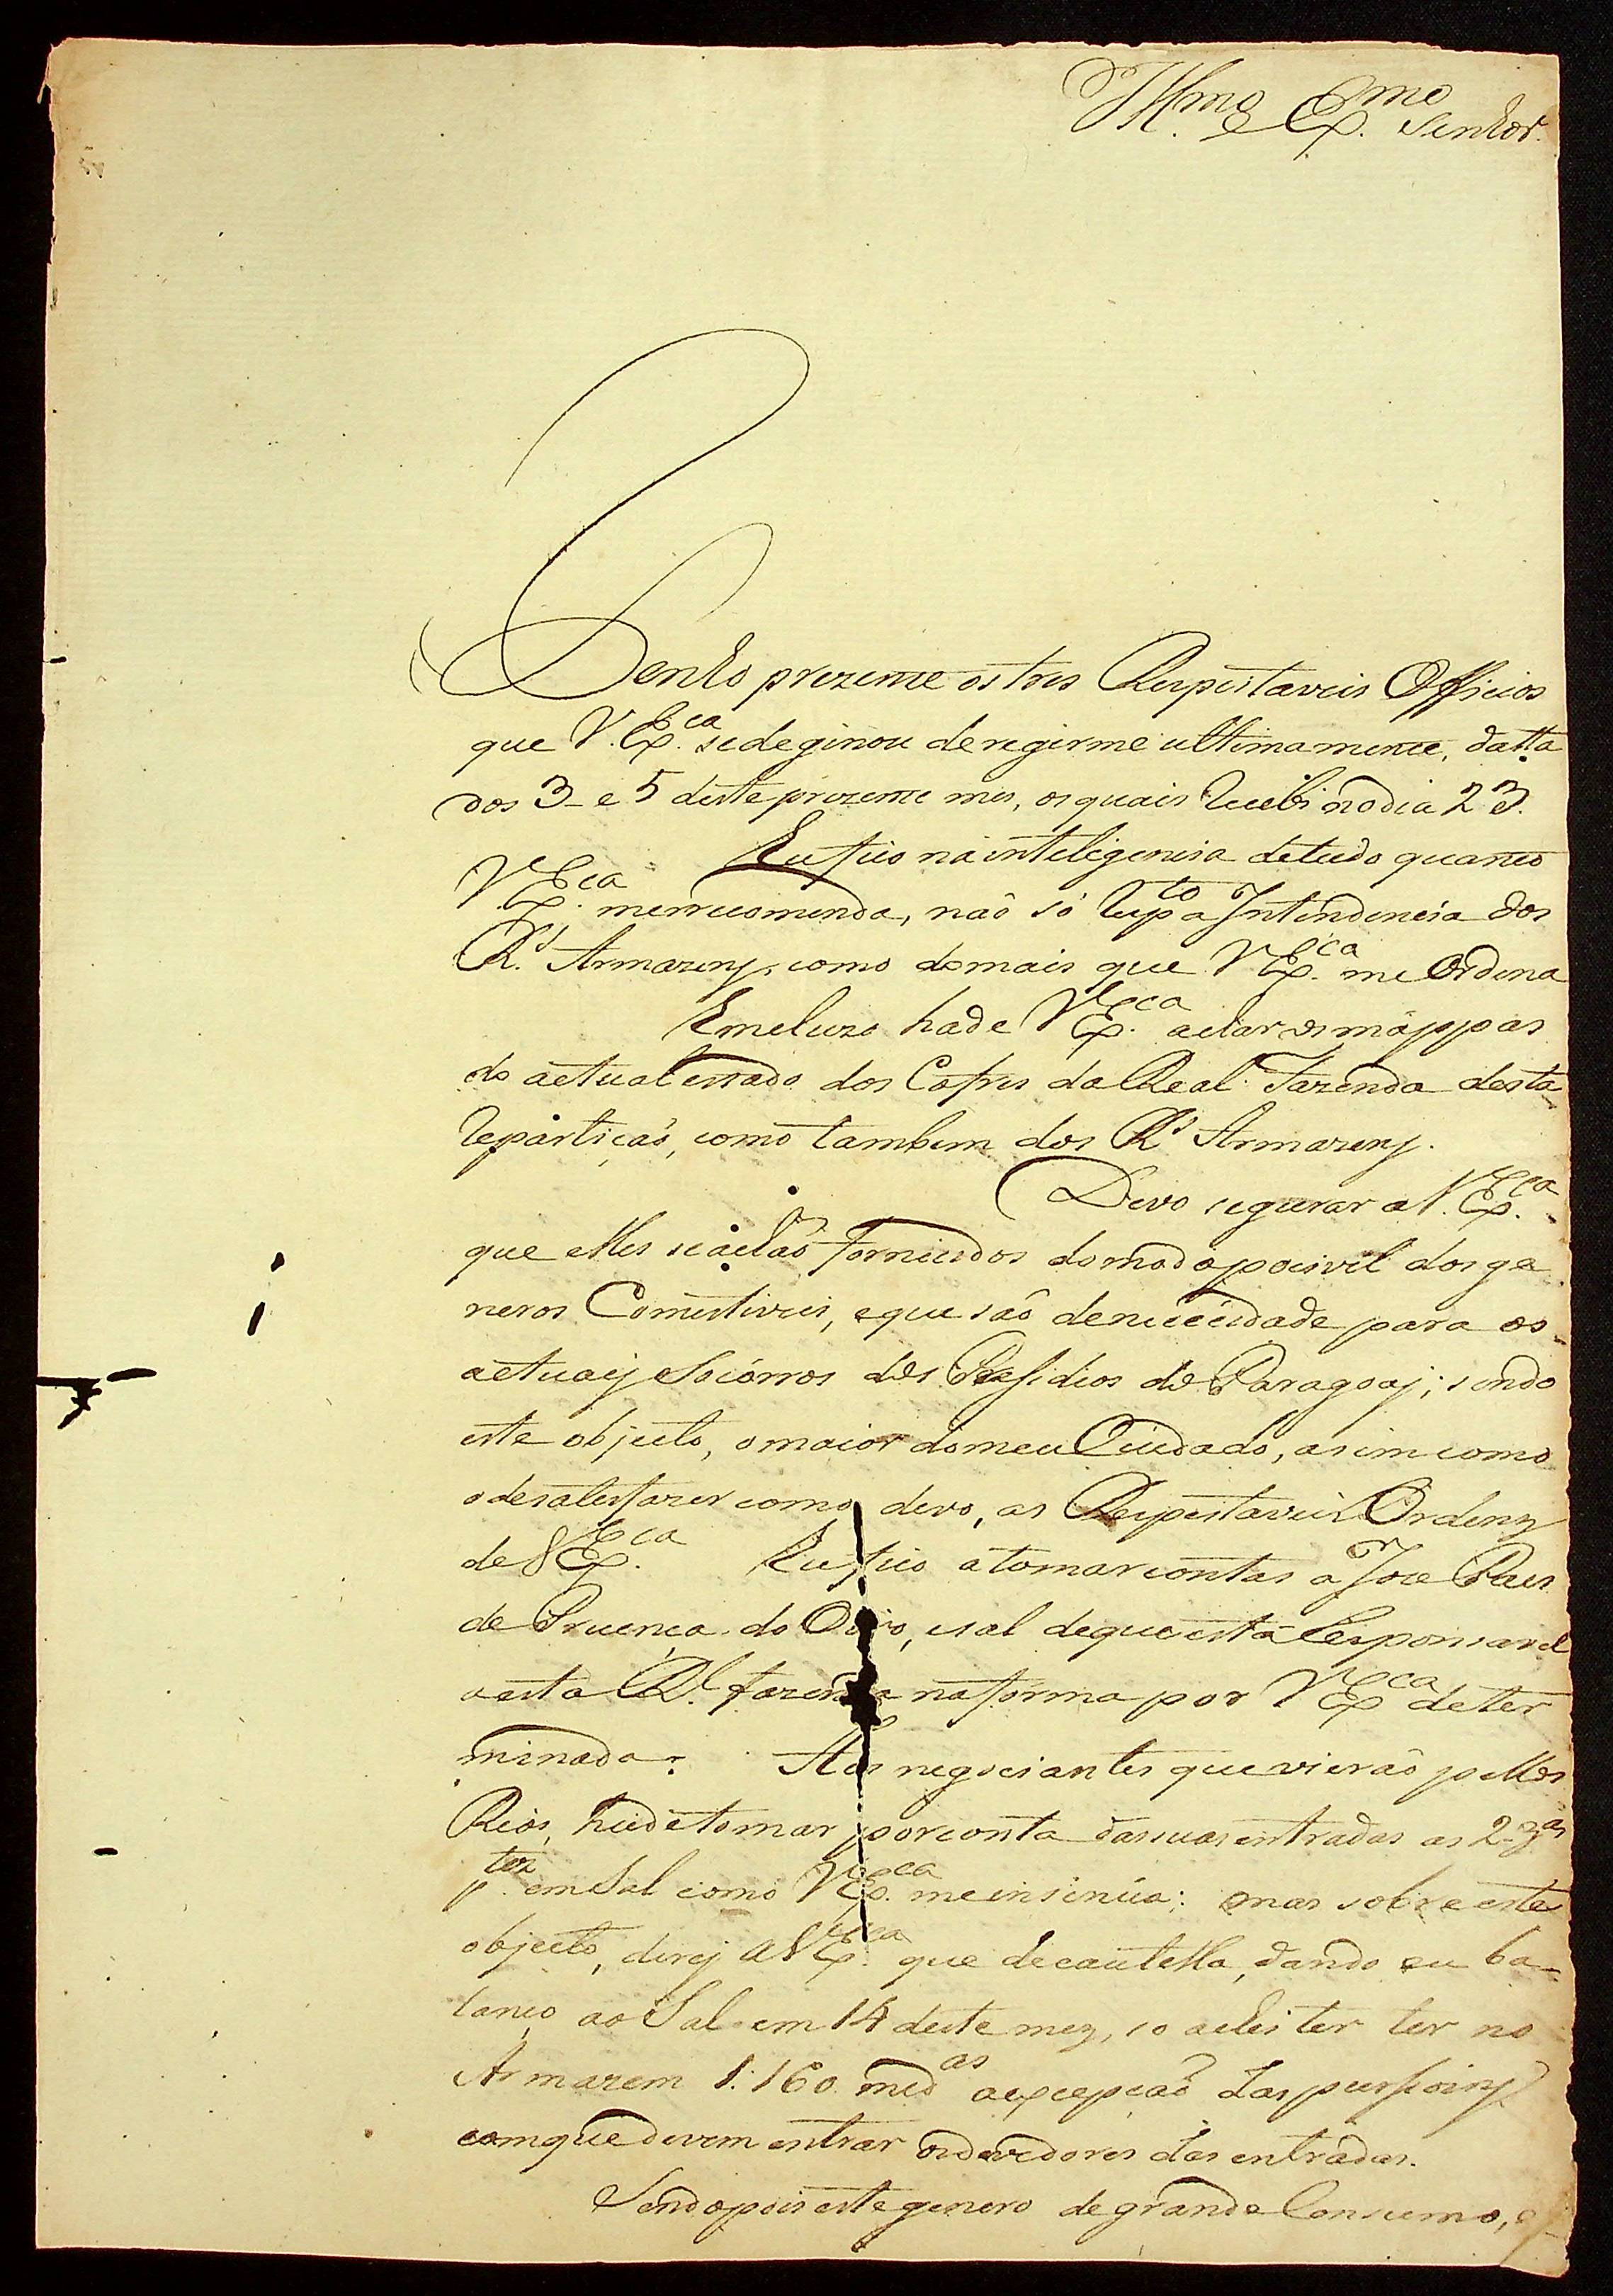 Illmo e Exmo Senhor.
Tenho prezente os tres Respeitaveis Officios
que V. Exca se deginou deregirme ultimamente, datta
dos 3 e 5 deste prezente mes, os quais recebi no dia 23.
Eu fico na inteligencia de tudo quanto
V. Exca merrecomenda, não só respto a Intendencia dos
Rs Armazens, como domais que V Exca me Ordena
Emcluzo hade V Exca achar os máppas
do actual estado dos Cofres da Real Fazenda desta
repartição, como tambem dos Rs Armazens.
Devo segurar a V. Exca
que elles se achão fornecidos do modo possivel dos ge
neros Comestiveis, e que são denececidade para os
actuais Socórros dos Presidios do Paragoai; sendo
este objecto, o maior do meu Cuidado, asim como
o desatesfazer como devo, as Respeitaveis Ordens
de V Exca Eu fico a tomar contas a Joze Paes
de Pruença do Oiro, e sal de que está responsavel
a esta Rl fazenda na forma por V Exca deter
minada. Aos negociantes que vierão pellos
Rios, heide tomar por conta das suas entradas as 2 3as
ptes em Sal como V Exca me insinúa: mas sobre este
objecto, direi a V Exca que decautella, dando eu ba-
lanço ao Sal em 14 deste mez, so achei ter no
Armazem 1:160 medas a excepção das
com que devem entrar os devedores das entradas.
Sendo pois este genero de grande Consumo, e